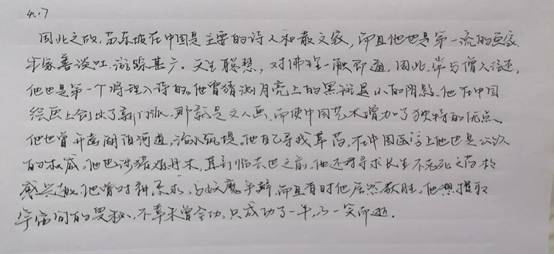 4.7
因此之故,苏东坡在中国是主要的诗人和散文家,而且他也是第一流的画家、
书家,善谈吐,游踪甚广。天生聪慧,对佛理一触即通,因此,常与僧人往还,
他也是第一个将哲理入诗的。他曾猜测月亮上的黑斑是山的阴影。他在中国
绘画上创出了新门派,那就是文人画,而使中国艺术增加了独特的优点。
他也曾开凿湖泊河道,治水筑堤。他自己寻找草药,在中国医学上他也是公认
的权威。他也涉猎炼丹术,直到临去世之前,他还对寻求长生不死之药极
感兴趣。他曾对神恳求,与妖魔争辩,而且有时他居然获胜。他想攫取
宇宙间的奥秘,不幸未竟全功,只成功了一半,乃一笑而逝。